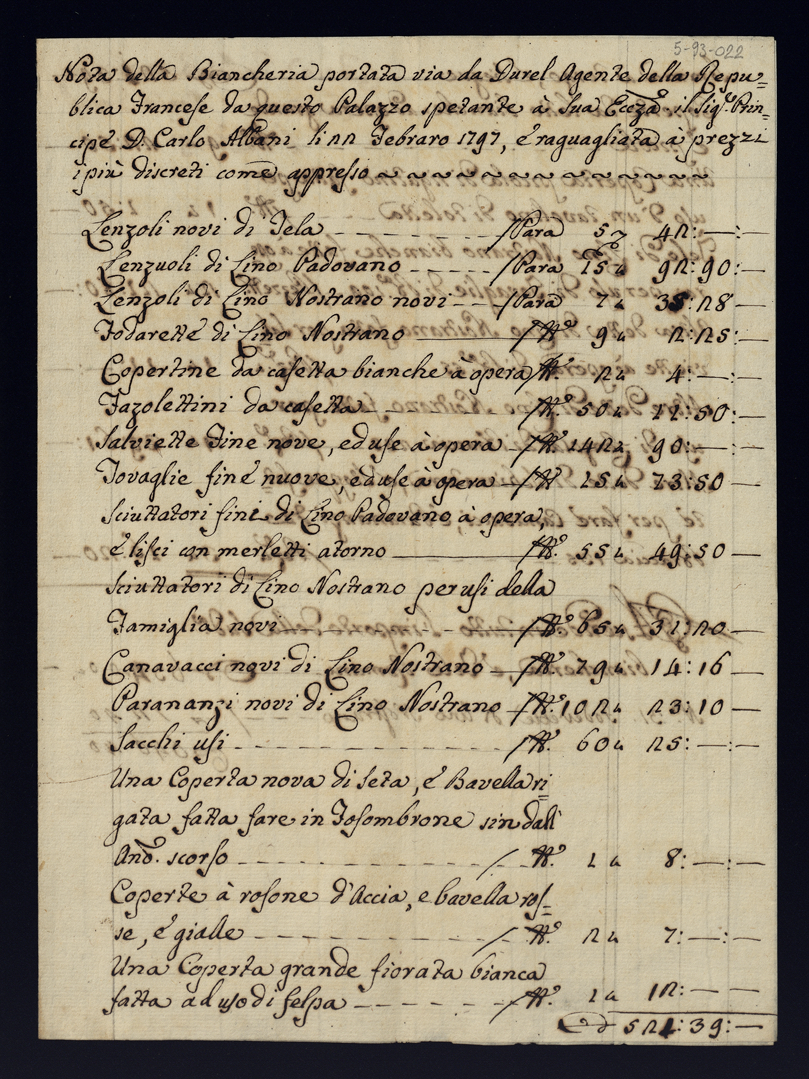 5-93-022
Nota della Biancheria portata via da Durel Agente della Repu=
blica Francese da questo Palazzo spetante à Sua Eccza il Sigr Prin=
cipe D. Carlo Albani li 22 Febraro 1797, e raguagliata à prezzi
i più discreti come appresso ~ ~ ~ ~ ~ ~ ~ ~ ~ ~ ~ ~
Lenzoli novi di Tela - - - - - - - / Para 5 42:—:—
Lenzuoli di Lino Padovano - - - - - / Para 15 a 92:90:—
Lenzoli di Lino Nostrano novi - - / Para 7 a 35:28—
Fodarette di Lino Nostrano ——— / No 9 a 2:25:—
Copertine da casetta bianche à opera / No 2 a 4:—:—
Fazolettini da casetta - - - - - / No 50 a 12:50:—
Salviette Fine nove, ed use à opera - / No 142 a 90:—:—
Tovaglie fine nuove, ed use à opera - / No 15 a 73:50—
Sciuttatori fini di Lino Padovano à opera,
e lisci con merletti atorno ——— / No 55 a 49:50—
Sciuttatori di Lino Nostrano per usi della
Famiglia novi - - - - - / No 65 a 31:20—
Canavacci novi di Lino Nostrano — / No 79 a 14:16—
Parananzi novi di Lino Nostrano — / No 102 a 23:10—
Sacchi usi - - - - - - - - - / No 60 a 25:—:—
Una Coperta nova di Seta, e Bavella ri=
gata fatta fare in Fosombrone sin dall
Ano. scorso - - - - - - - - / No 1 a 8:—:—
Coperte à rosone d'Accia, e bavella ros=
se, e gialle - - - - - - - - / No 2 a 7:—:—
Una Coperta grande fiorata bianca
fatta ad uso di felpa - - - - - / No 1 a 12:—:—
521:39:—